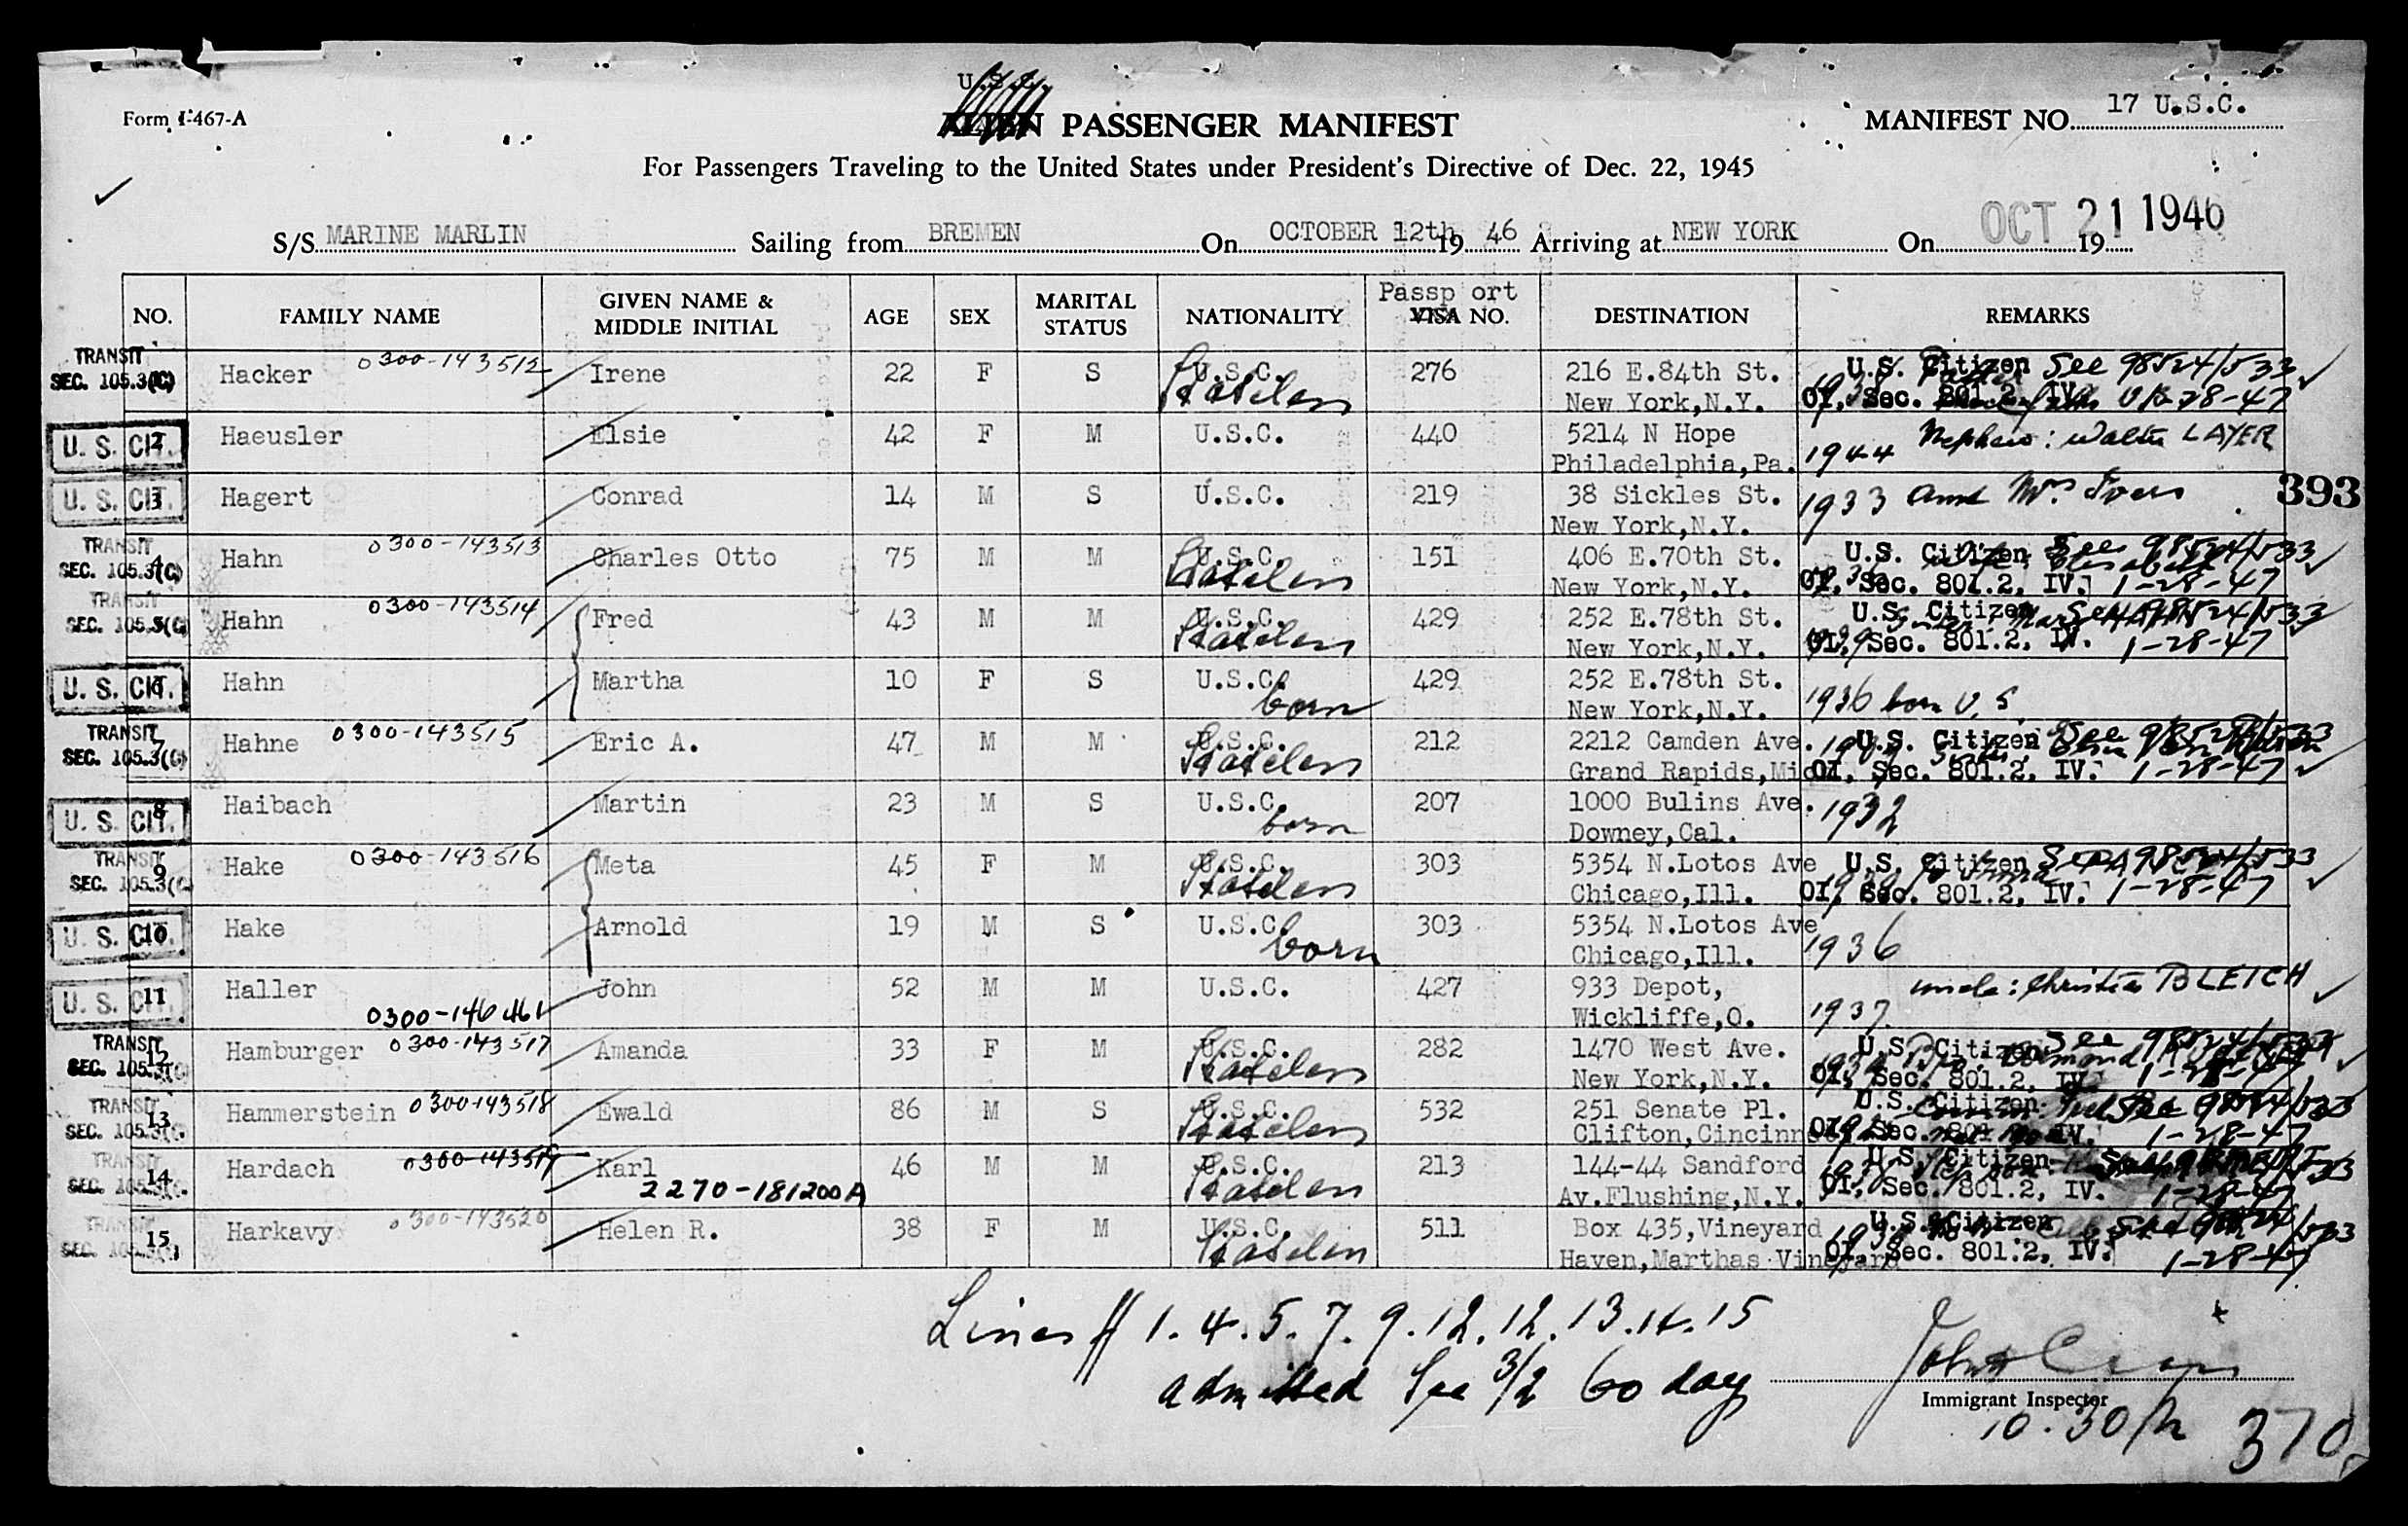 U.S.C.
Form I-467-A
ALIEN PASSENGER MANIFEST
MANIFEST NO. 17 U.S.C.
For Passengers Traveling to the United States under President's Directive of Dec. 22, 1945
S/S MARINE MARLIN Sailing from BREMEN On OCTOBER 12th 19 46 Arriving at NEW YORK On OCT 21 1946 19
NO. FAMILY NAME GIVEN NAME & MIDDLE INITIAL AGE SEX MARITAL STATUS NATIONALITY Passp ort VISA NO. DESTINATION REMARKS
TRANSIT SEC. 105.3(C) Hacker 0300-143512 Irene 22 F S U.S.C. 276 216 E.84th St. U.S. Citizen See 98524/533
New York,N.Y. OI, Sec. 801.2, IV. 1-28-47
U. S. CIT. 2 Haeusler Elsie 42 F M U.S.C. 440 5214 N Hope Nephew: Walter LAYER
Philadelphia,Pa. 1944
U. S. CIT. 3 Hagert Conrad 14 M S U.S.C. 219 38 Sickles St. 1933 Aunt Mrs
New York,N.Y.
393
TRANSIT SEC. 105.3(C) 4 Hahn 0300-143513 Charles Otto 75 M M U.S.C. 151 406 E.70th St. U.S. Citizen See 98524/533
New York,N.Y. OI, Sec. 801.2, IV. 1-28-47
TRANSIT SEC. 105.3(C) 5 Hahn 0300-143514 Fred 43 M M U.S.C. 429 252 E.78th St. U.S. Citizen See 98524/533
New York,N.Y. OI, Sec. 801.2, IV. 1-28-47
U. S. CIT. 6 Hahn Martha 10 F S U.S.C. born 429 252 E.78th St.
New York,N.Y. 1936 born U.S.
TRANSIT SEC. 105.3(C) 7 Hahne 0300-143515 Eric A. 47 M M U.S.C. 212 2212 Camden Ave. U.S. Citizen See 98524/533
Grand Rapids,Mich OI, Sec. 801.2, IV. 1-28-47
U. S. CIT. 8 Haibach Martin 23 M S U.S.C. born 207 1000 Bulins Ave. 1932
Downey,Cal.
TRANSIT SEC. 105.3(C) 9 Hake 0300-143516 Meta 45 F M U.S.C. 303 5354 N.Lotos Ave U.S. Citizen See 98524/533
Chicago,Ill. OI, Sec. 801.2, IV. 1-28-47
U. S. CIT. 10 Hake Arnold 19 M S U.S.C. born 303 5354 N.Lotos Ave
Chicago,Ill. 1936
U. S. CIT. 11 Haller John 52 M M U.S.C. 427 933 Depot, uncle: Christian BLEICH
0300-146461 Wickliffe,O. 1937
TRANSIT SEC. 105.3(C) 12 Hamburger 0300-143517 Amanda 33 F M U.S.C. 282 1470 West Ave. U.S. Citizen See 98524/533
New York,N.Y. OI, Sec. 801.2, IV. 1-28-47
TRANSIT SEC. 105.3(C) 13 Hammerstein 0300-143518 Ewald 86 M S U.S.C. 532 251 Senate Pl. U.S. Citizen See 98524/533
Clifton,Cincinn OI, Sec. 801.2, IV. 1-28-47
TRANSIT SEC. 105.3(C) 14 Hardach 0300-143519 Karl 46 M M U.S.C. 213 144-44 Sandford U.S. Citizen
2270-181200A Av.Flushing,N.Y. OI, Sec. 801.2, IV. 1-28-47
TRANSIT SEC. 15 Harkavy 0300-143520 Helen R. 38 F M U.S.C. 511 Box 435,Vineyard U.S. Citizen
Haven,Marthas Vineyard OI, Sec. 801.2, IV. 1-28-47
Lines # 1. 4. 5. 7. 9. 12. 12. 13. 14. 15
admitted Sec 3/2 60 days
John
Immigrant Inspector
10.30
370